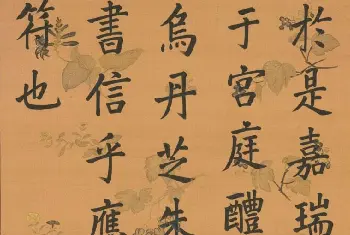 於是嘉瑞
于宮庭醴
烏丹芝朱
書信乎應
符也